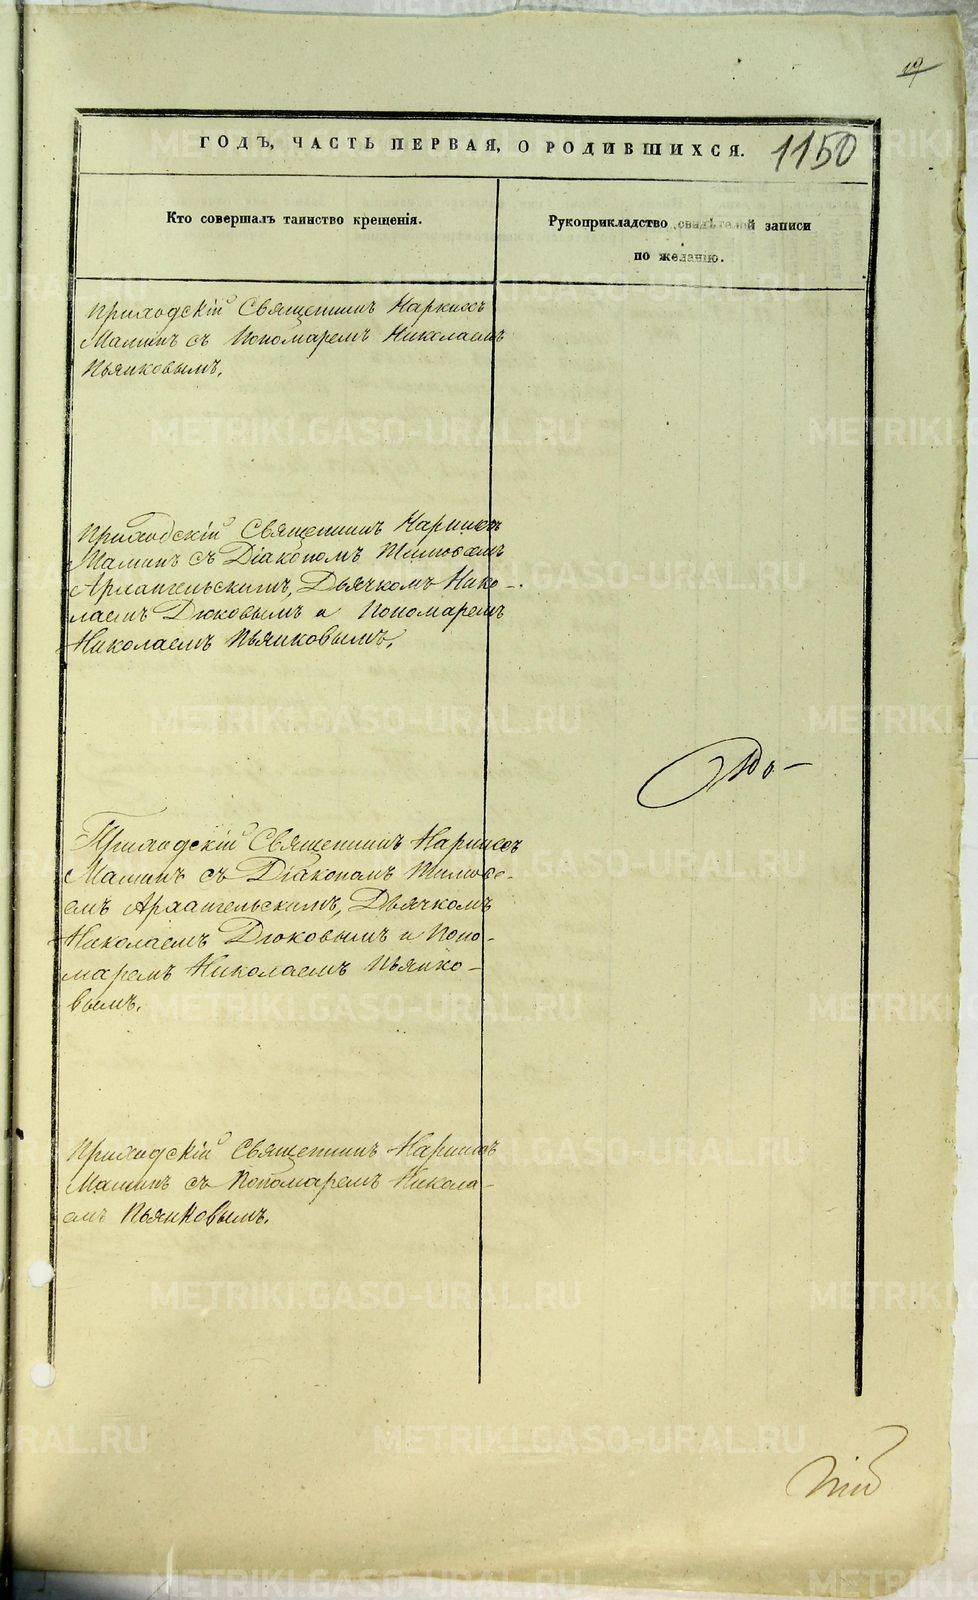 19
ГОДЪ, ЧАСТЬ ПЕРВАЯ, О РОДИВШИХСЯ.
1150
Кто совершалъ таинство крещенія.
Рукоприкладство свидѣтелей записи
по желанію.
Приходскій Священникъ Наркиссъ
Маминъ съ Пономаремъ Николаемъ
Пьянковымъ.
Приходскій Священникъ Наркиссъ
Маминъ съ Діакономъ Тимофеемъ
Архангельскимъ, Дьячкомъ Нико-
лаемъ Дюковымъ и Пономаремъ
Николаемъ Пьянковымъ.
Приходскій Священникъ Наркиссъ
Маминъ съ Діакономъ Тимофе-
емъ Архангельскимъ, Дьячкомъ
Николаемъ Дюковымъ и Поно-
маремъ Николаемъ Пьянко-
вымъ.
Приходскій Священникъ Наркиссъ
Маминъ съ Пономаремъ Никола-
емъ Пьянковымъ.
METRIKI.GASO-URAL.RU